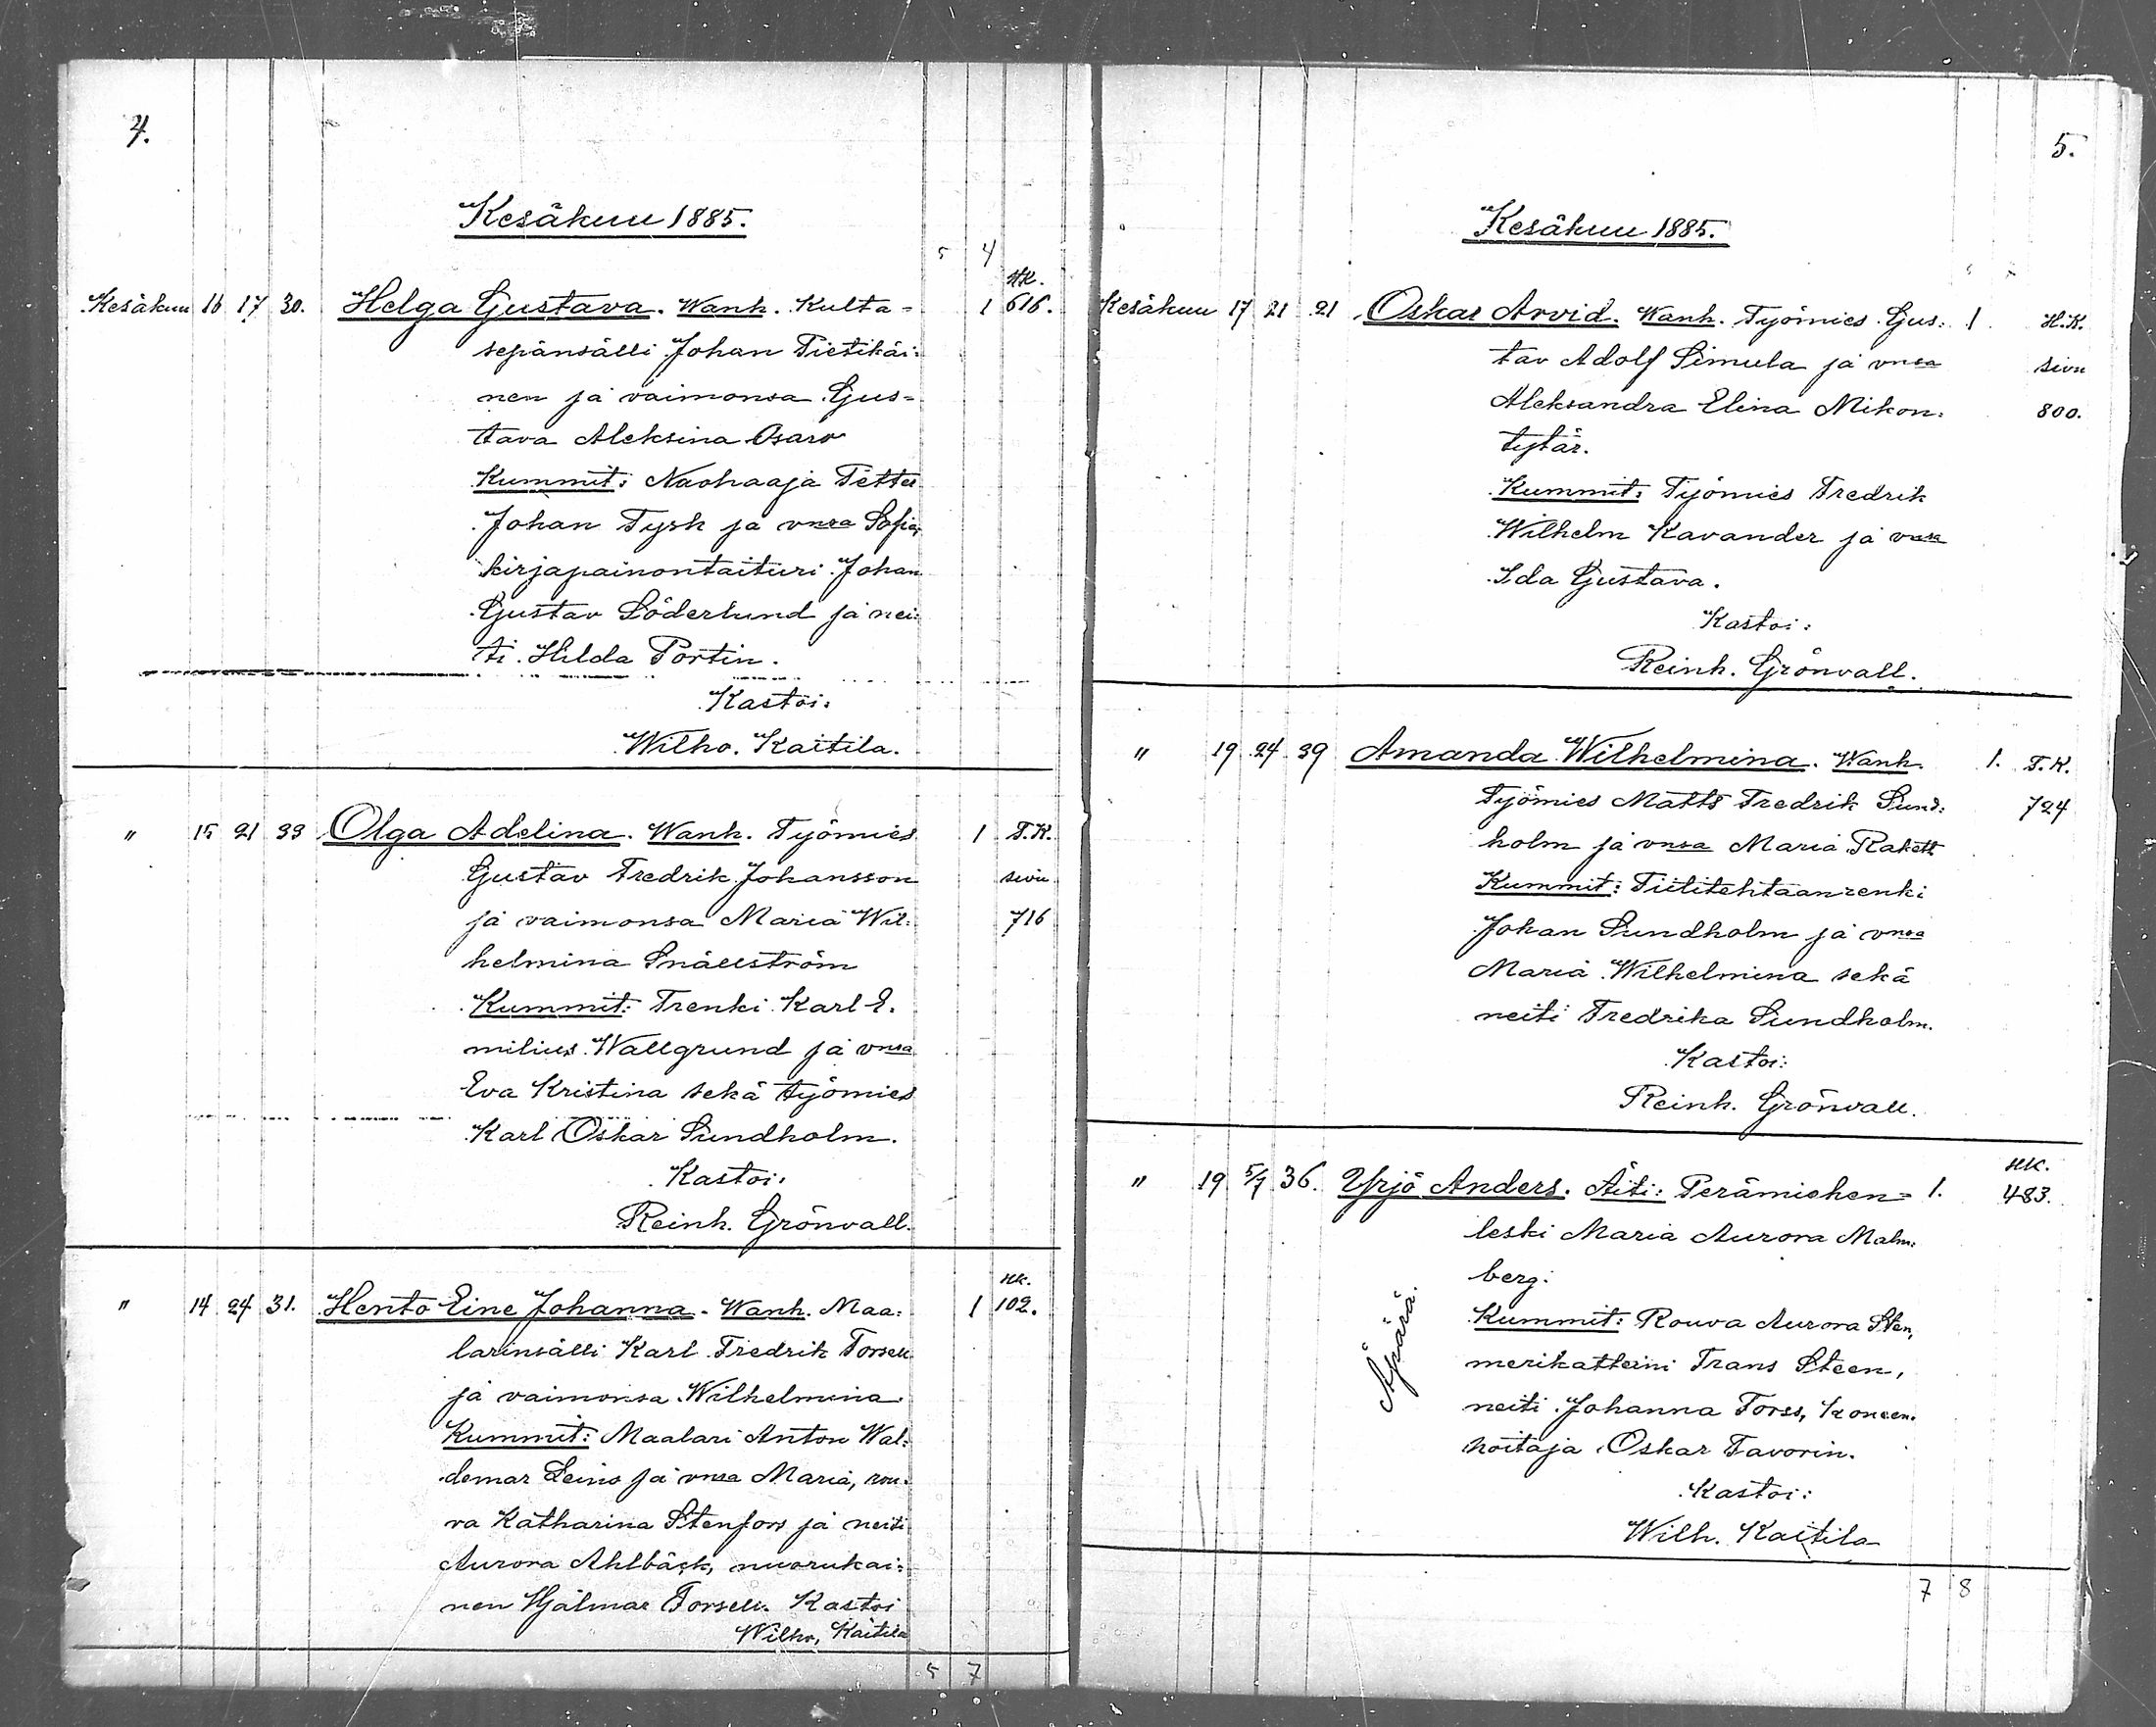 4.
Kesäkuu 1885.
5 4
HK.
Kesäkuu 16 17 30. Helga Gustava. Wanh. Kulta= 1 616.
sepänsälli Johan Tietikäi:
nen ja vaimonsa Gus=
tava Aleksina Osaro
Kummit: Nachaaja Petter
Johan Tysk ja vnsa Sofia,
kirjapainontaituri Johan
Gustav Söderlund ja nei:
ti Hilda Portin.
Kastoi:
Wilho. Kaitila.
" 15 21 33 Olga Adelina. Wanh. Työmies 1 T.K.
Gustav Fredrik Johansson sivu
ja vaimonsa Maria Wil: 716
helmina Snällström
Kummit: Trenki Karl E.
milius Wallgrund ja vnsa
Eva Kristina sekä työmies
Karl Oskar Sundholm.
Kastoi:
Reinh. Grönvall.
HK.
" 14 24 31. Hento Eine Johanna. Wanh. Maa: 1 102.
larinsälli Karl Fredrik Forsell
ja vaimonsa Wilhelmina
Kummit: Maalari Anton Wal:
demar Leino ja vnsa Maria, rou:
va Katharina Stenfors ja neiti
Aurora Ahlbäck, nuorukai:
nen Hjalmar Forsell. Kastoi
Wilho, Kaitila
5 7
5.
Kesäkuu 1885.
Kesäkuu 17 21 21 Oskar Arvid. Wanh. Työmies Gus: 1 H.K.
tav Adolf Simula ja vnsa sivu
Aleksandra Elina Mikon: 800.
tytär.
Kummit: Työmies Fredrik
Wilhelm Kavander ja vnsa
Ida Gustava.
Kastoi:
Reinh. Grönvall.
" 19 24 39 Amanda Wilhelmina. Wanh. 1. T.K.
Työmies Matts Fredrik Sund: 724
holm ja vnsa Maria Rakett
Kummit: Tiilitehtaanrenki
Johan Sundholm ja vnsa
Maria Wilhelmina sekä
neiti Fredrika Sundholm.
Kastoi:
Reinh. Grönvall.
HK.
" 19 5/7 36. Yrjö Anders. Äiti: Perämiehen= 1. 483.
leski Maria Aurora Malm:
berg.
Äpärä.
Kummit: Rouva Aurora Sten,
merikatteini Frans Steen,
neiti Johanna Forss, koneen.
hoitaja Oskar Favorin.
Kastoi:
Wilh. Kaitila
7 8